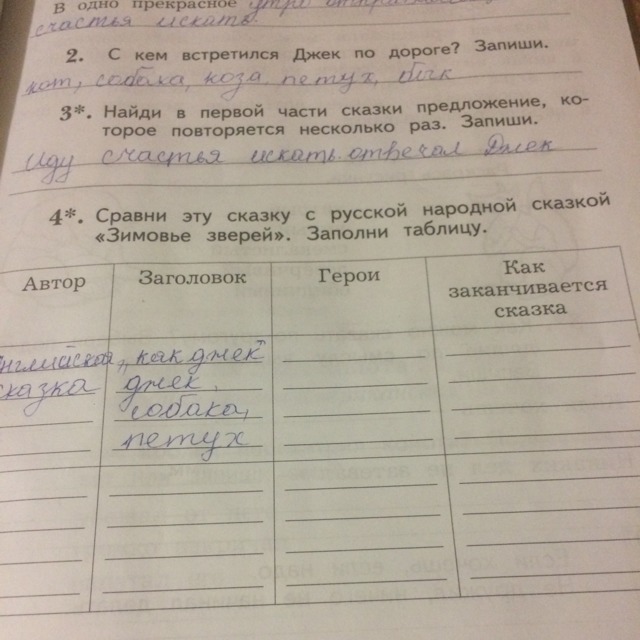 В одно прекрасное утро
счастья искать.
2. С кем встретился Джек по дороге? Запиши.
кот, собака, коза, петух, бык
3*. Найди в первой части сказки предложение, ко-
торое повторяется несколько раз. Запиши.
Иду счастья искать. отвечал Джек
4*. Сравни эту сказку с русской народной сказкой
«Зимовье зверей». Заполни таблицу.
Автор Заголовок Герои Как
заканчивается
сказка
английская „как джек"
сказка джек,
собака,
петух